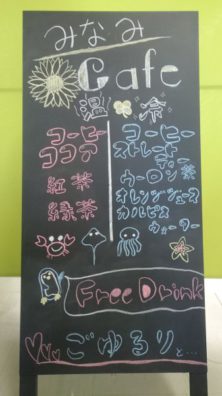 みなみ
Cafe
温 冷
コーヒー
ココア
紅茶
緑茶
コーヒー
ストレート
ティー
ウーロン茶
オレンジジュース
カルピス
ウォーター
Free Drink
ごゆるりと...